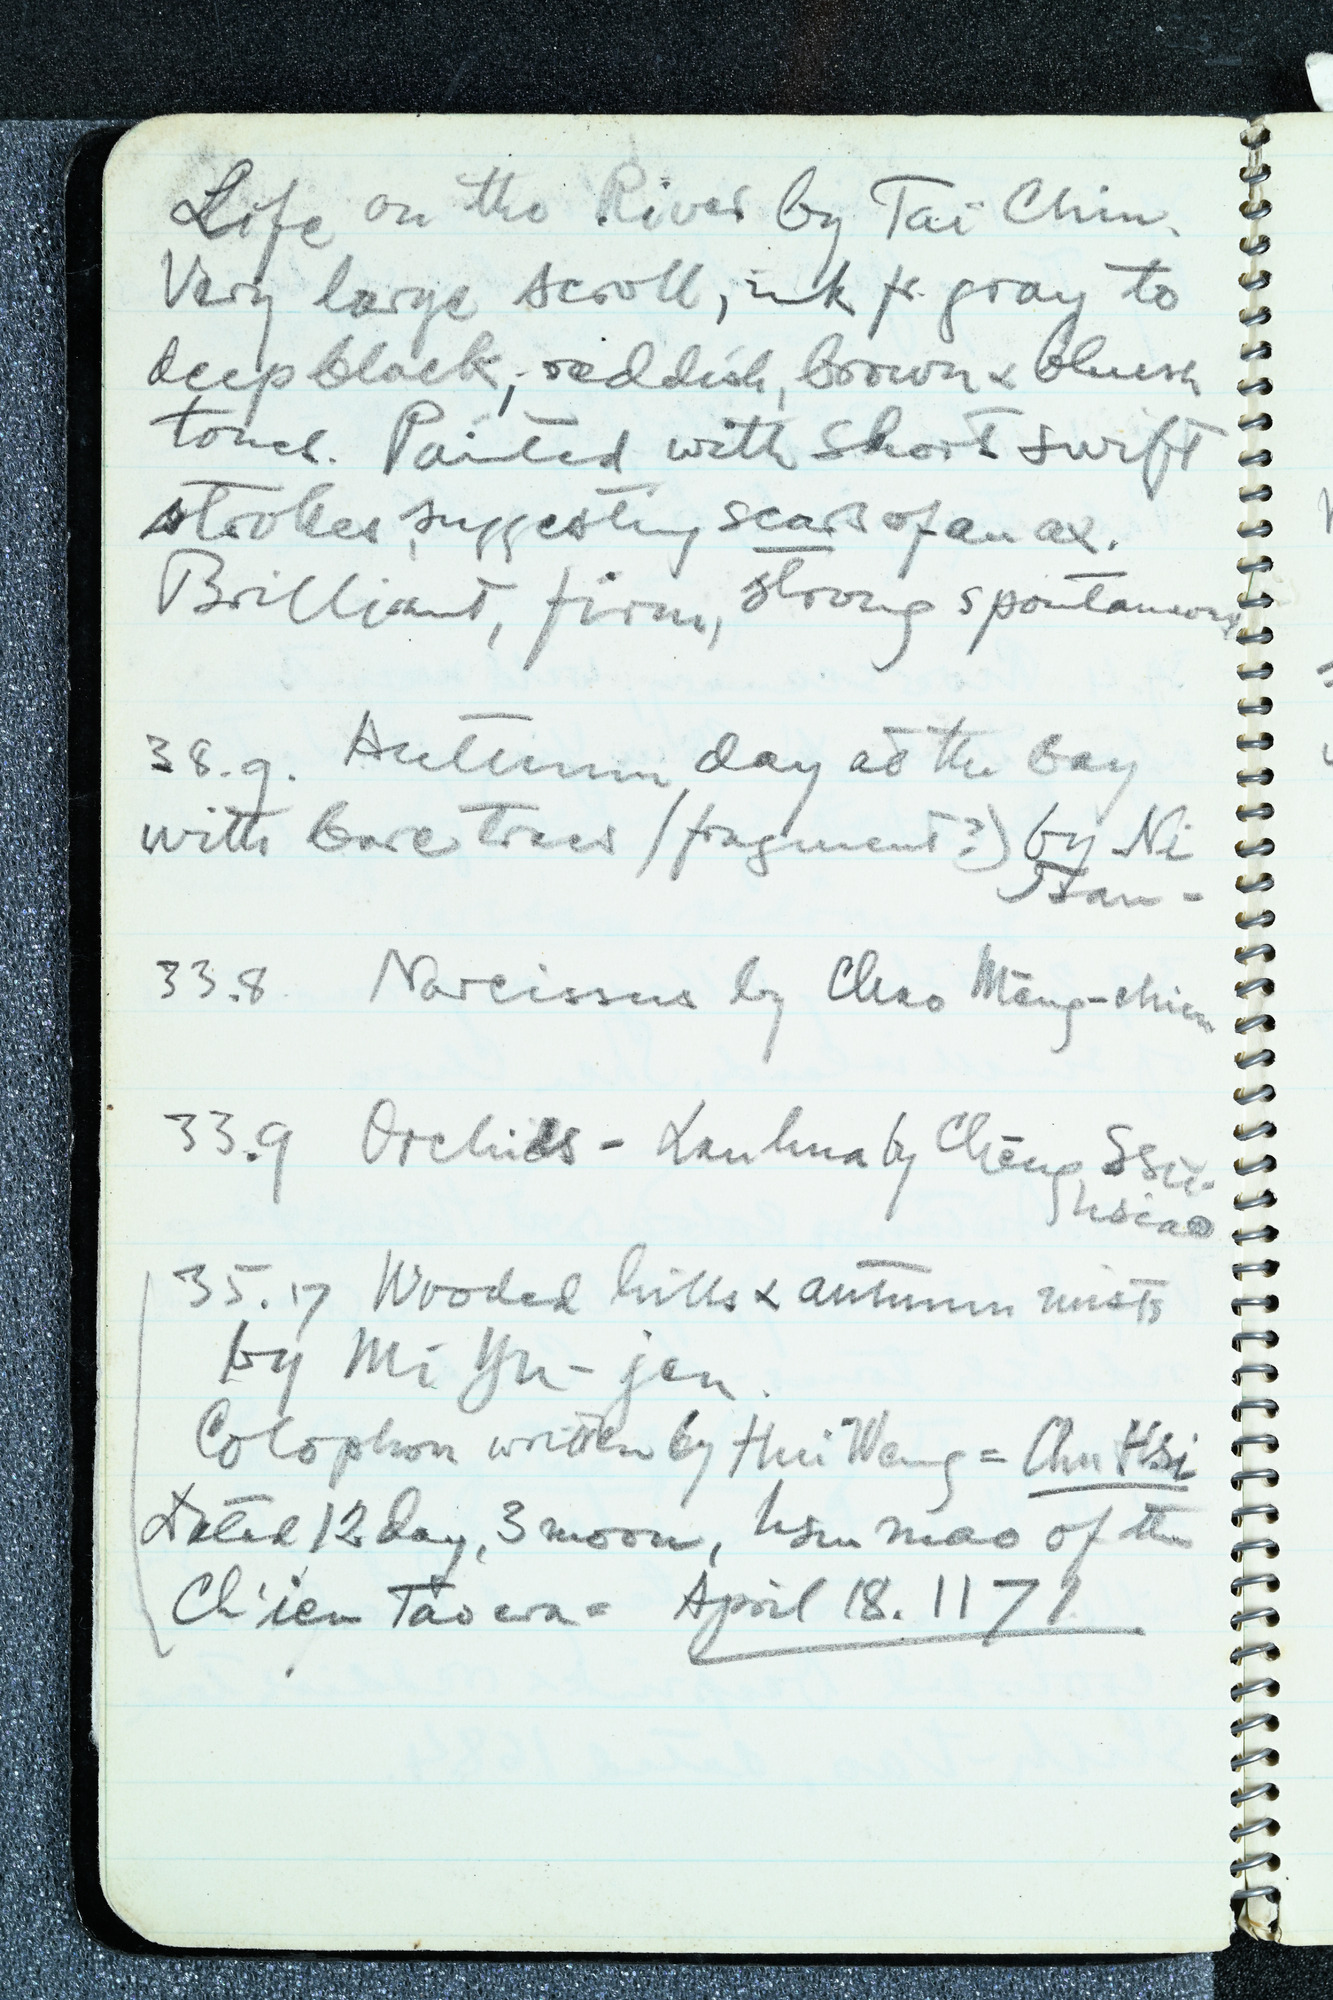 Life on the River by Tai Chin.
Very large scroll, ink fr. gray to
deep black, reddish, brown & bluish
tones. Painted with short swift
strokes, suggesting scars of an ax.
Brilliant, firm, strong spontaneous
38.9. Autumn day at the bay
with bare trees (fragment?) by Ni
Tsan -
33.8 Narcissus by Chao Mêng-chien
33.9 Orchids - Lan hua by Chêng Ssu-
hsiao
35.17 Wooded hills & autumn mists
by Mi Yu-jen.
Colophon written by Hui Weng = Chu Hsi
Dated 12 day, 3 moon, hsin mao of the
Ch'ien Tao era = April 18. 1171